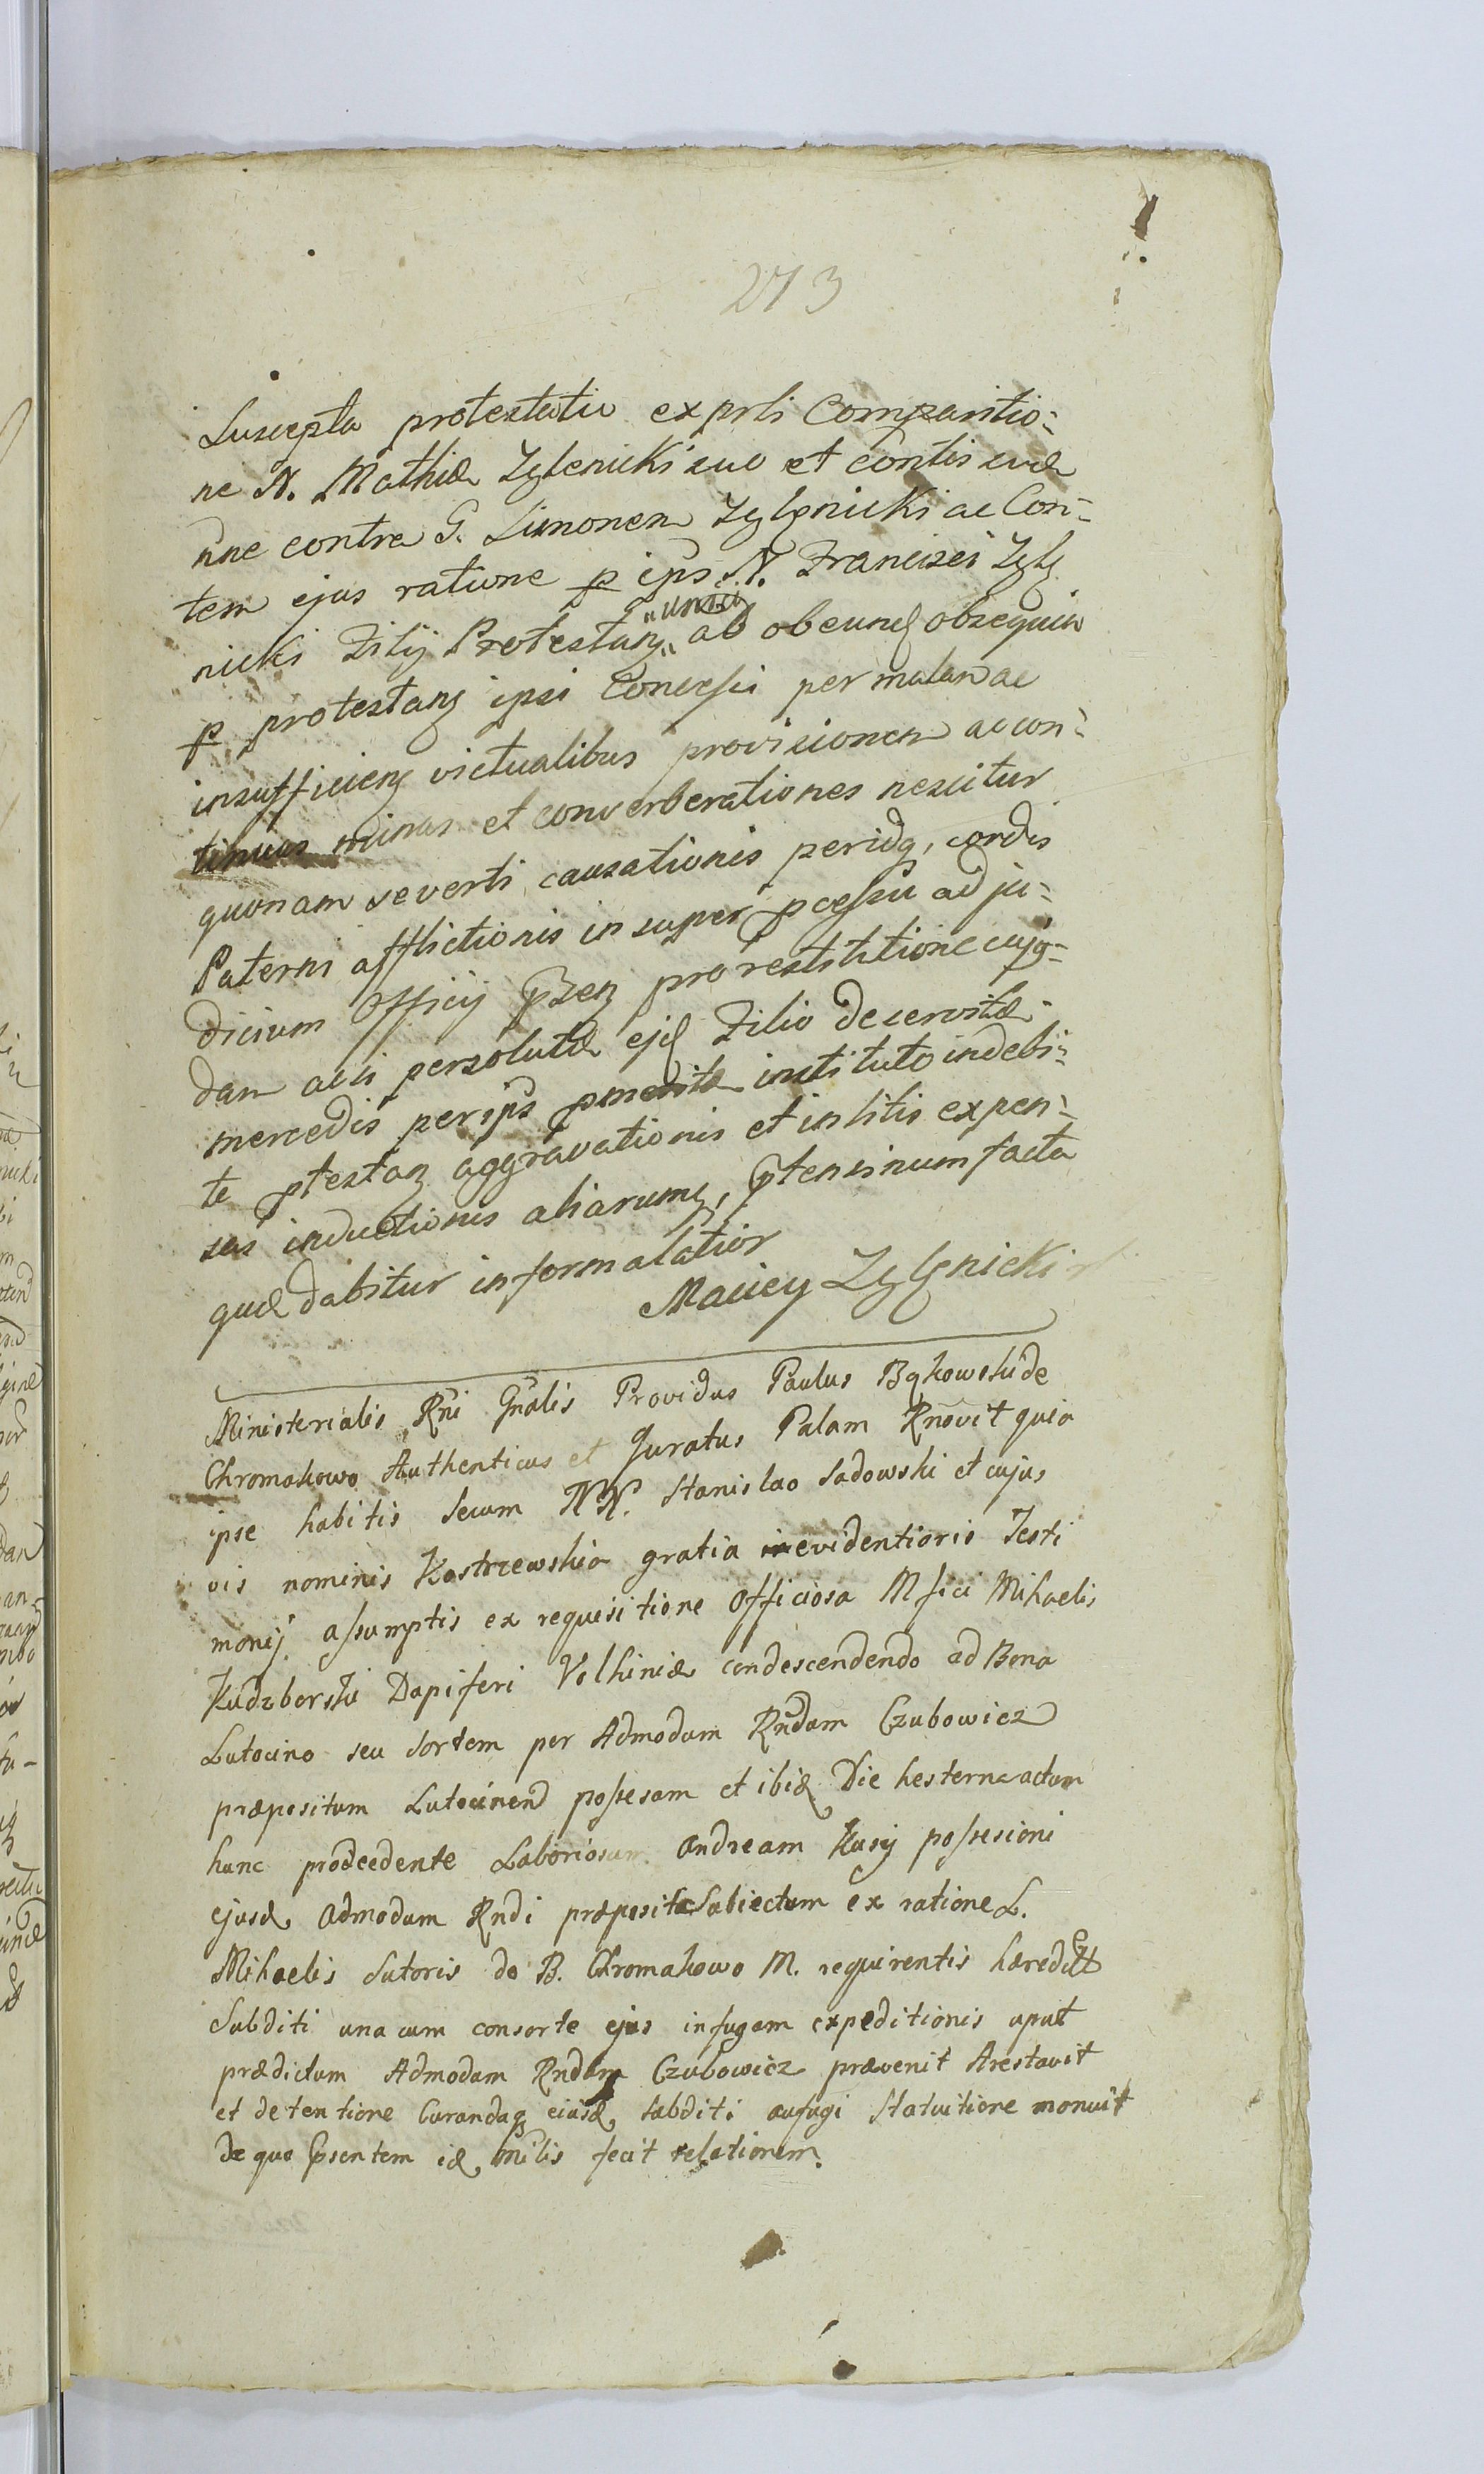 273
Suscepta protestatio ex prsli Comparitio:
ne N. Mathiæ Zglenicki suo et Contis suæ
nñe contra G. Simonem Zglenicki ac Con:
tem ejus ratione p ips N. Francisci Zgle
nicki Filij Protestanz ab obeund obsequia
p protestanz ipsi Concessi per malam ac
insufficienz victualibus provisionem ac con:
tinuas minas et converberationes nescitur
quonam severti causationis peridq, cordis
Paterni afflictionis insuper pcessu ad ju:
dicium Officij pñsenz pro restitutione cujq:
dam acti persolutæ ejd Filio deservitæ
mercedis per ips pmeritæ instituto indebi:
te ptestanz aggravationis et in litis expen:
sas inductionis aliarumq, ptensinum facta
quæ dabitur informa latior
Maciey Zglenicki
Ministerialis Rñi Gñalis Providus Paulus Bąkowski de
Chromakowo Authenticus et Juratus Palam Rñovit quia
ipse habitis Secum NN. Stanislao Sadowski et cujus
vis nominis Kostrzewskia gratia evidentioris Testi
monij assumptis ex requisitione Officiosa Mfici Mihaelis
Kudzborski Dapiferi Volhiniæ condescendendo ad Bona
Lutocino seu Sortem per Admodum Rñdum Czubowicz
præpositum Lutocinend possesam et ibid Die hesterna actum
hunc prodcedente Laboriosum Andream Kusy possesioni
ejusd Admodum Rndi præpositi Subiectum ex ratione L.
Mihaelis Sutoris de B. Chromakowo M. requirentis hæredit
Subditi una cum consorte ejus in fugam expeditionis aput
prædictum Admodum Rndum Czubowicz prævenit Arestavit
et detentione Curandaq eiusd subditi aufugi Statuitione monuit
de quo Psentem id Mñlis fecit relationem.